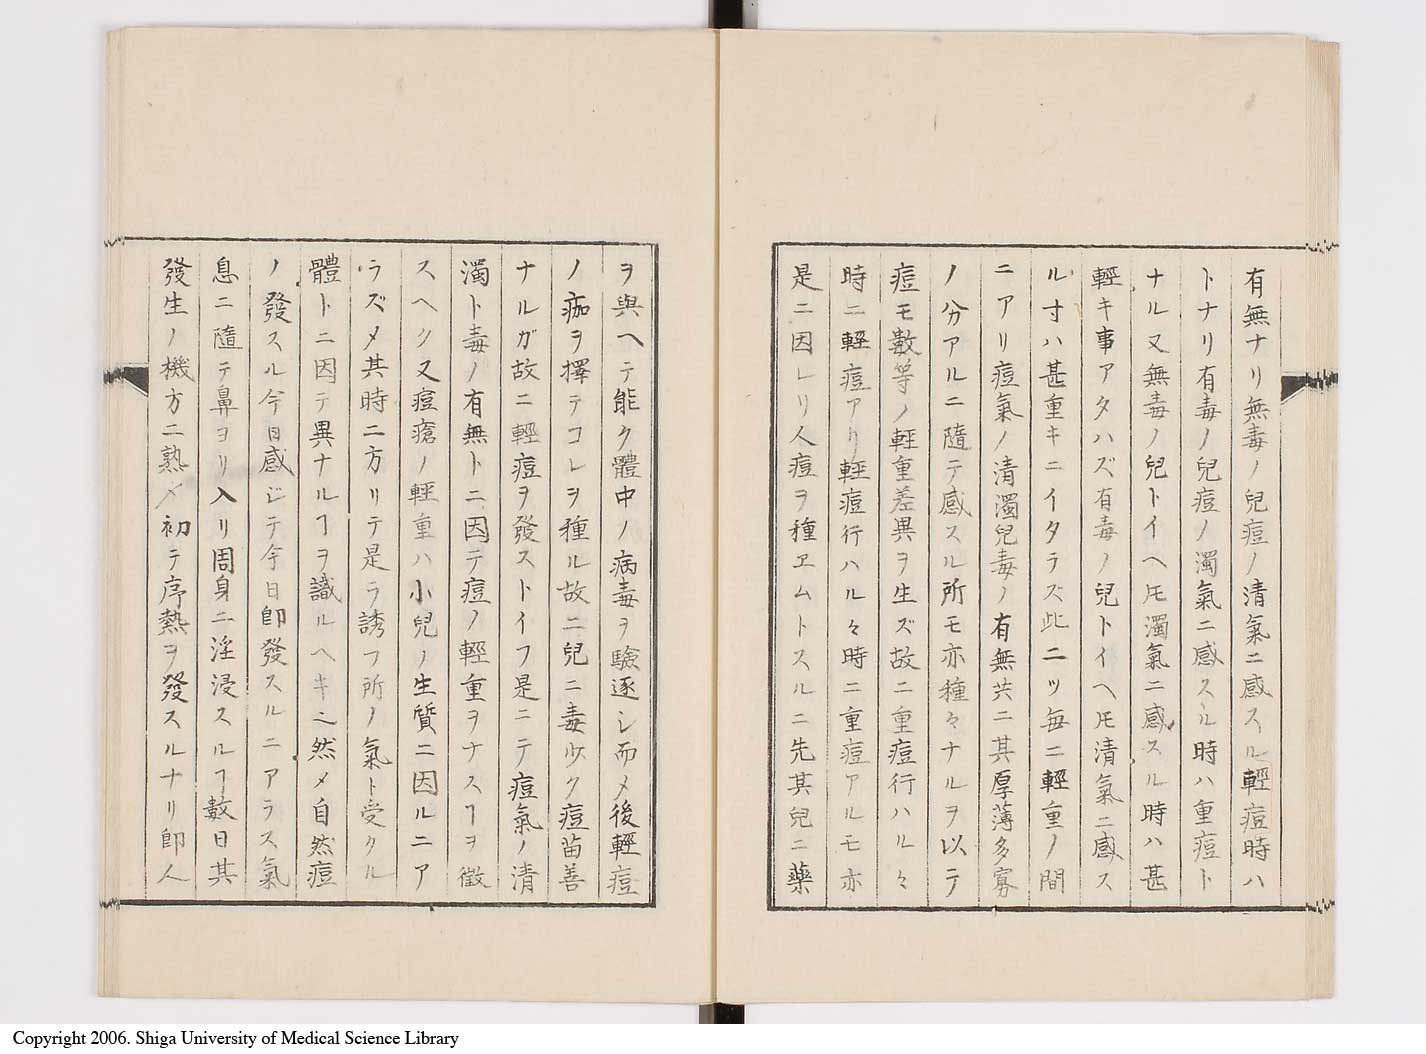 有無ナリ無毒ノ兒痘ノ清氣ニ感スル輕痘時ハ
トナリ有毒ノ兒痘ノ濁氣ニ感スル時ハ重痘ト
ナル又無毒ノ兒トイヘ𪜈濁氣ニ感スル時ハ甚
輕キ事アタハズ有毒ノ兒トイヘ𪜈清氣ニ感ス
ル寸ハ甚重キニイタラズ此二ツ毎ニ輕重ノ間
ニアリ痘氣ノ清濁兒毒ノ有無共ニ其厚薄多寡
ノ分アルニ隨テ感スル所モ亦種々ナルヲ以テ
痘モ數等ノ輕重差異ヲ生ズ故ニ重痘行ハル々
時ニ輕痘アリ輕痘行ハル々時ニ重痘アルモ亦
是ニ因レリ人痘ヲ種ヱムトスルニ先其兒ニ藥
ヲ與ヘテ能ク體中ノ病毒ヲ驗逐シ而メ後輕痘
ノ痂ヲ擇テコレヲ種ル故ニ兒ニ毒少ク痘苗善
ナルガ故ニ輕痘ヲ發ストイフ是ニテ痘氣ノ清
濁ト毒ノ有無トニ因テ痘ノ輕重ヲナスヿヲ徴
スヘク又痘瘡ノ輕重ハ小兒ノ生質ニ因ルニア
ラズメ其時ニ方リテ是ヲ誘フ所ノ氣ト受クル
體トニ因テ異ナルヿヲ識ルヘキ之然メ自然痘
ノ發スル今日感ジテ今日卽發スルニアラス氣
息ニ隨テ鼻ヨリ入リ周身ニ淫浸スルヿ數日其
發生ノ機方ニ熟メ初テ序熱ヲ發スルナリ卽人
Copyright 2006. Shiga University of Medical Science Library